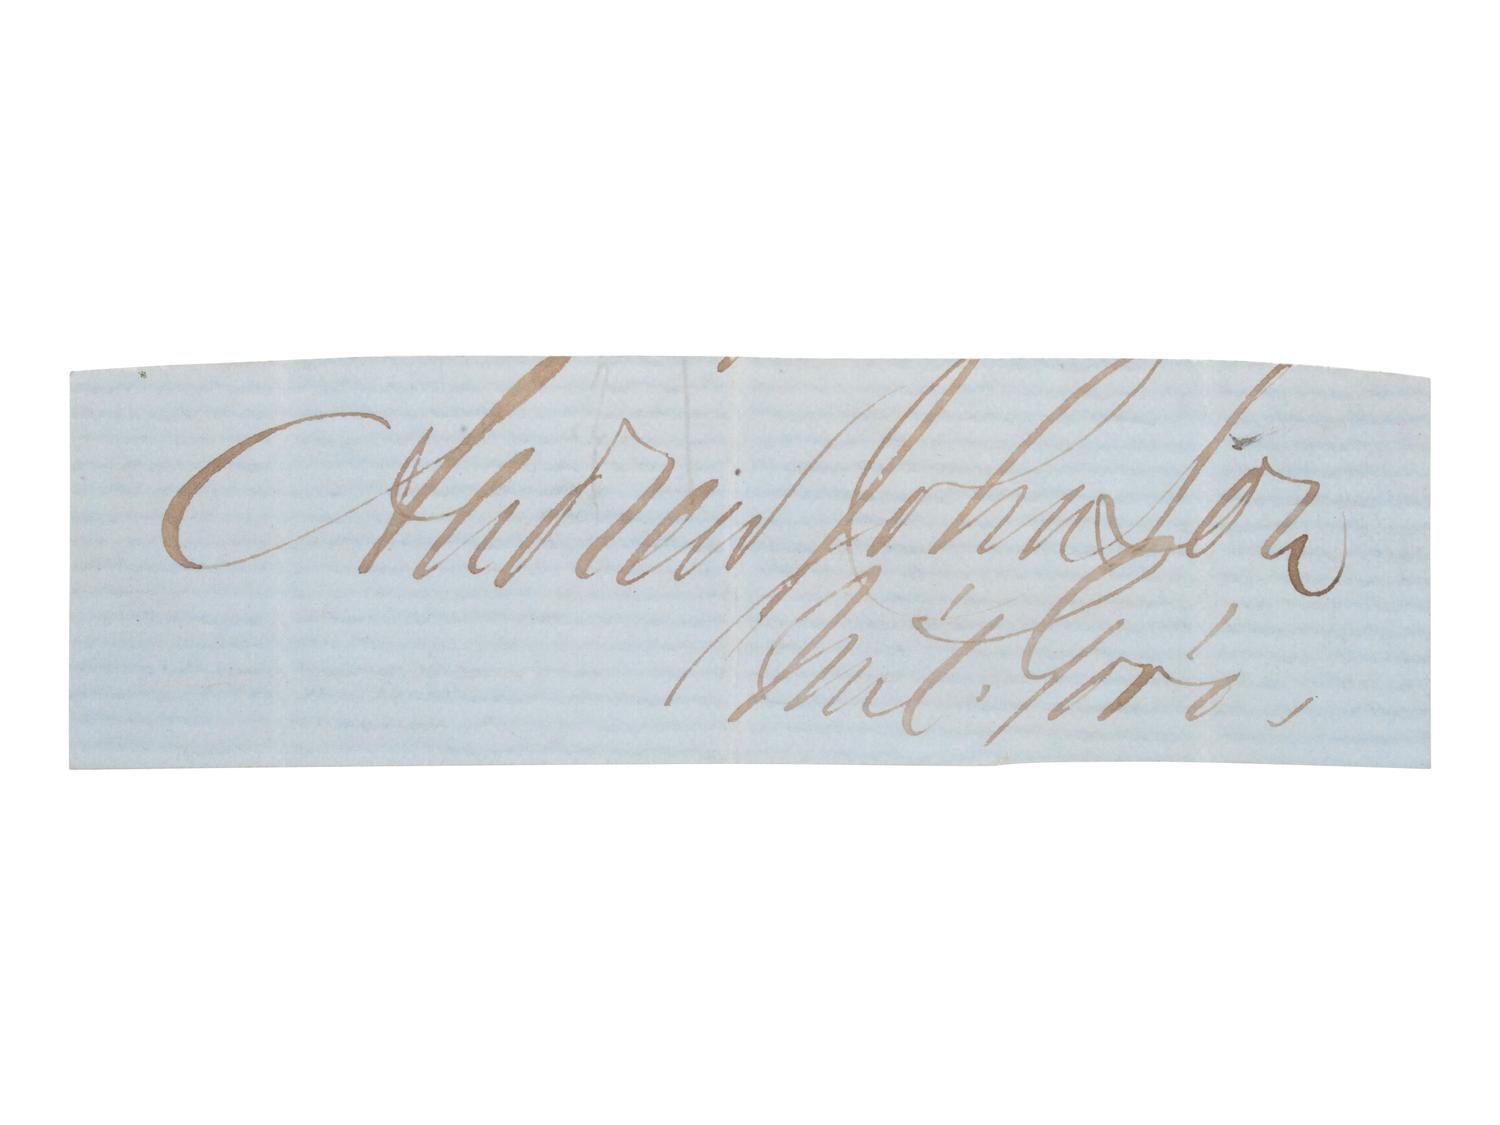 Andrew Johnson
Mil. Gov'r,